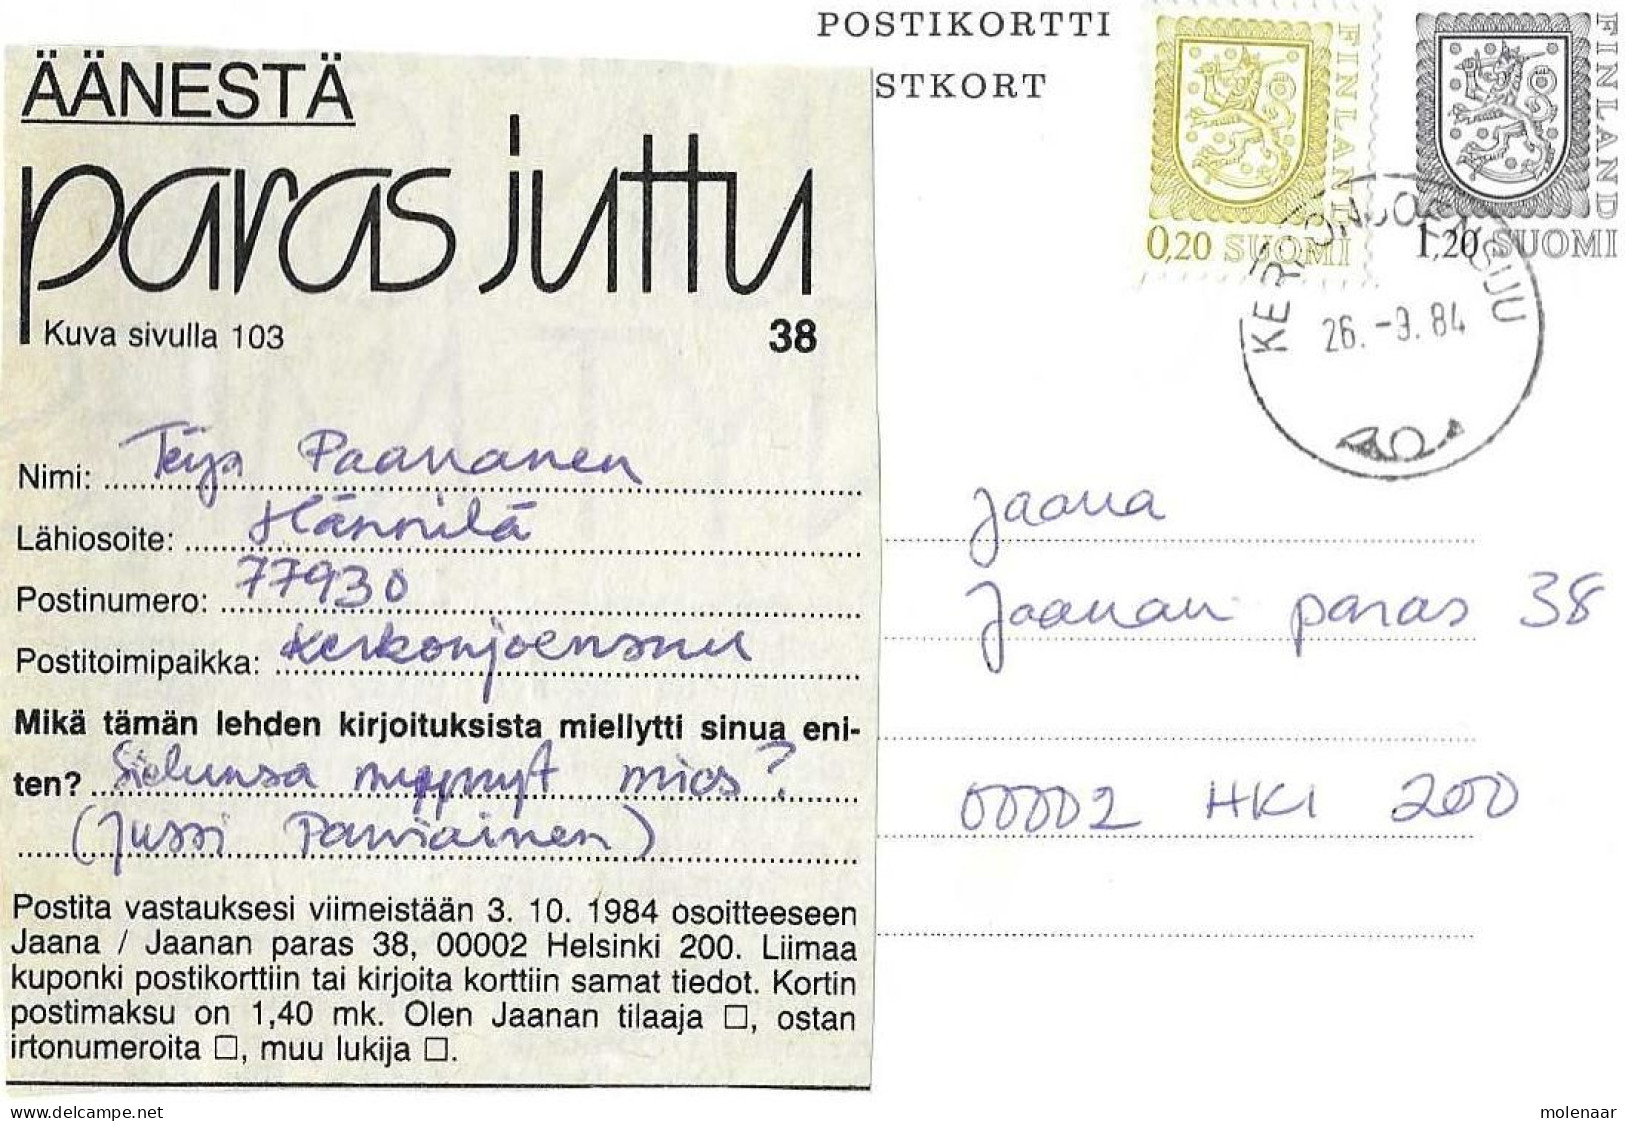 POSTIKORTTI
STKORT
FINLAND
0,20 SUOMI
FINLAND
1,20 SUOMI
26.-9.84
ÄÄNESTÄ
paras juttu
Kuva sivulla 103
38
Nimi: Teija Paananen
Lähiosoite: Hännilä
Postinumero: 77930
Postitoimipaikka: Kerkonjoensuu
Mikä tämän lehden kirjoituksista miellytti sinua eni-
ten? Sielunsa myynyt mies?
(Jussi Parviainen)
Postita vastauksesi viimeistään 3. 10. 1984 osoitteeseen
Jaana / Jaanan paras 38, 00002 Helsinki 200. Liimaa
kuponki postikorttiin tai kirjoita korttiin samat tiedot. Kortin
postimaksu on 1,40 mk. Olen Jaanan tilaaja □, ostan
irtonumeroita □, muu lukija □.
Jaana
Jaanan paras 38
00002 HKI 200
delcampe.net
molenaar